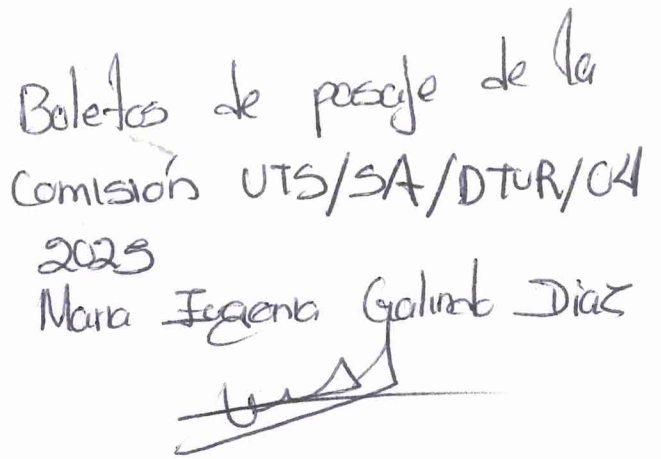 Boletos de pasaje de la
Comisión UTS/SA/DTUR/04
2025
Maria Eugenia Galindo Diaz